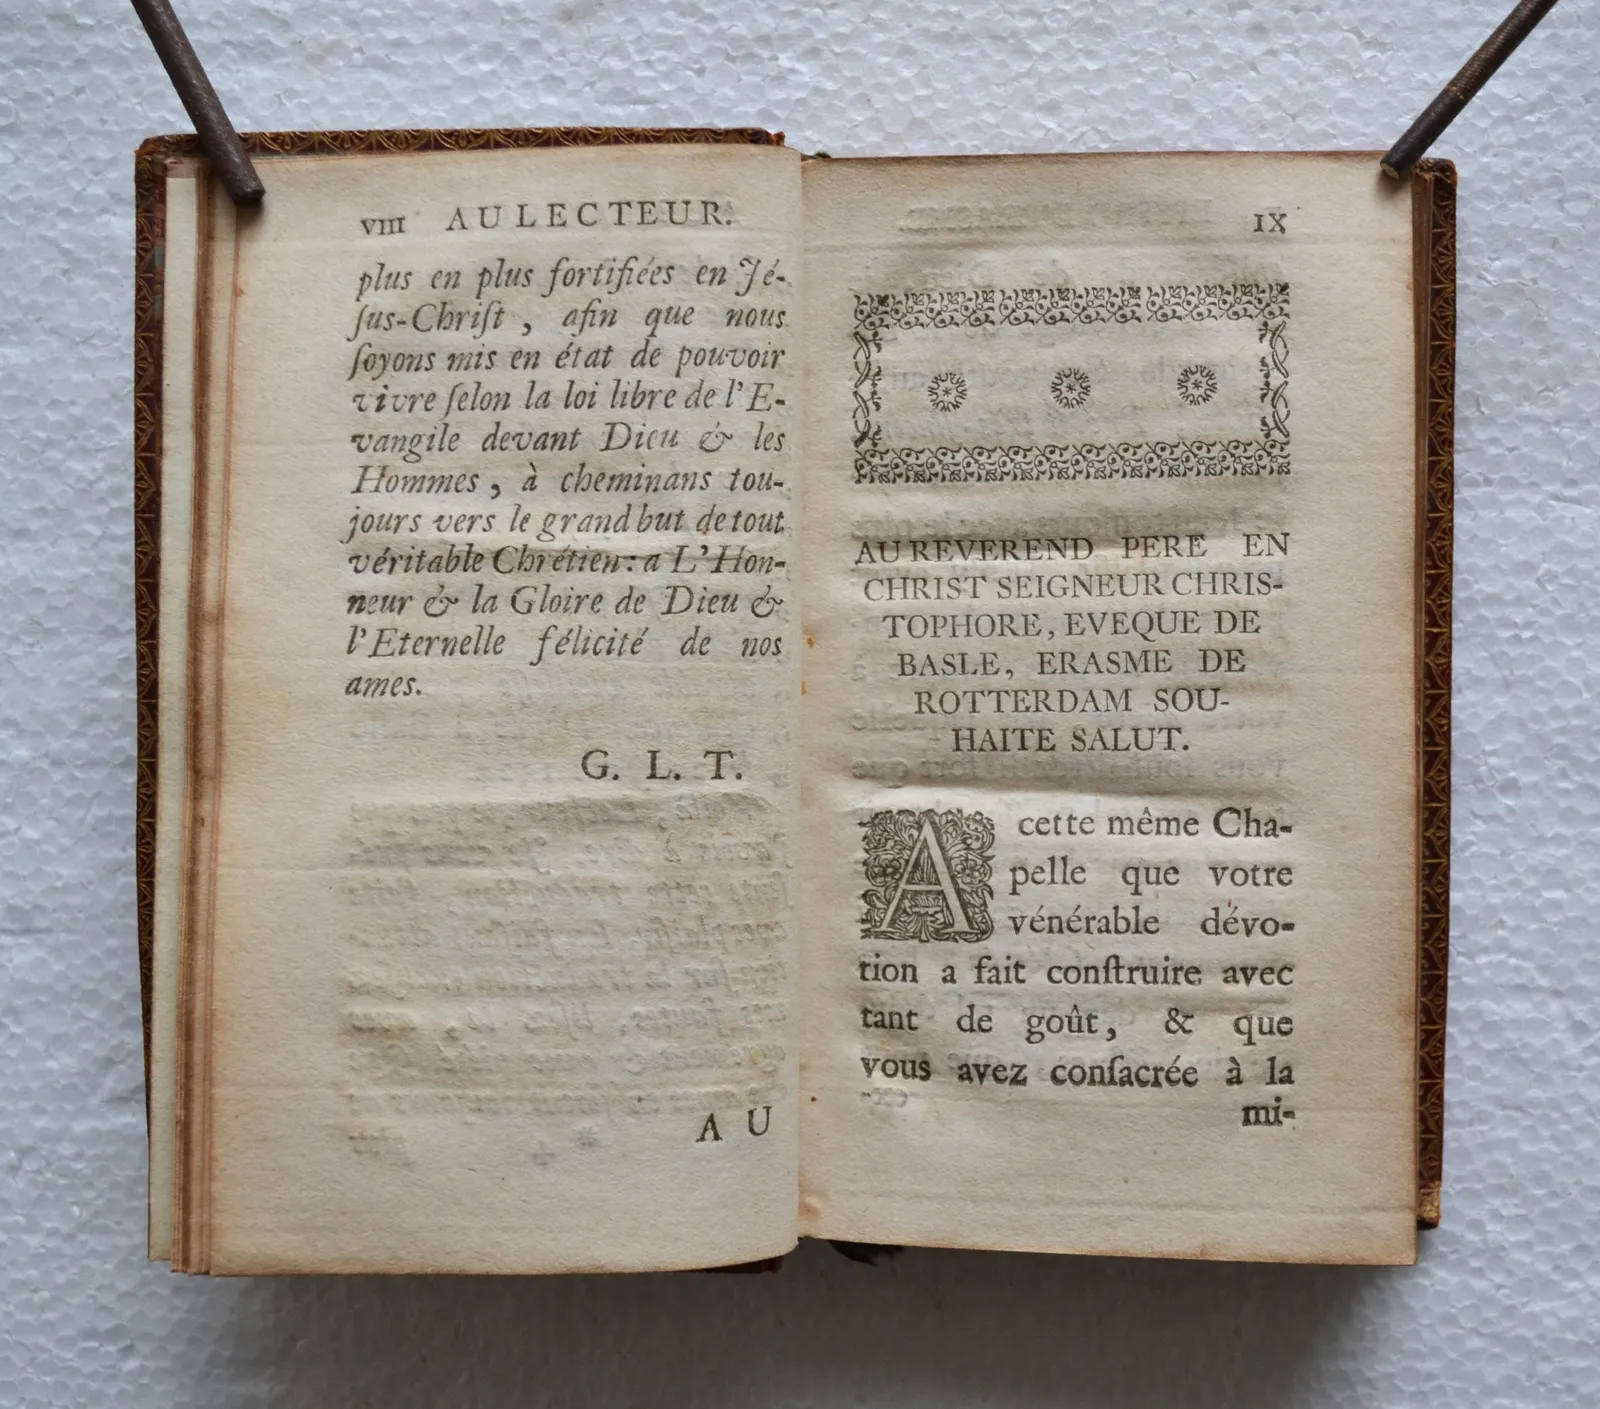 VIII AU LECTEUR.
plus en plus fortifiées en Jé-
ſus-Chriſt , afin que nous
ſoyons mis en état de pouvoir
vivre ſelon la loi libre de l'E-
vangile devant Dieu & les
Hommes , à cheminans tou-
jours vers le grand but de tout
véritable Chrétien : a L'Hon-
neur & la Gloire de Dieu &
l'Eternelle félicité de nos
ames.
G. L. T.
A U
IX
AU REVEREND PERE EN
CHRIST SEIGNEUR CHRIS-
TOPHORE, EVEQUE DE
BASLE, ERASME DE
ROTTERDAM SOU-
HAITE SALUT.
A cette même Cha-
pelle que votre
vénérable dévo-
tion a fait conſtruire avec
tant de goût, & que
vous avez conſacrée à la
mi-